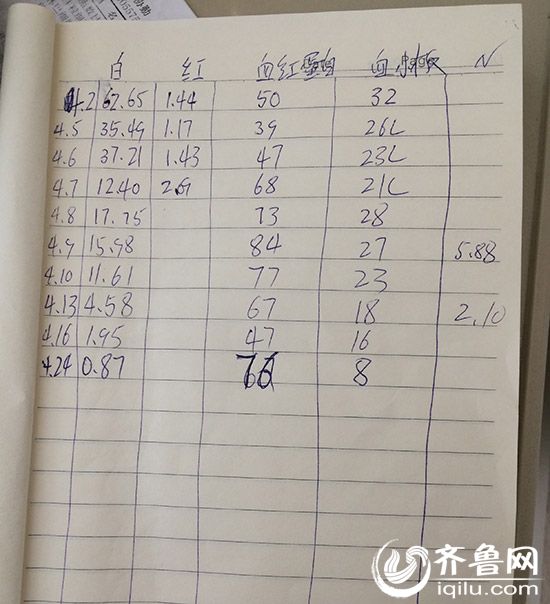 白 红 血红蛋白 血小板 N
4.2 62.65 1.44 50 32
4.5 35.49 1.17 39 26L
4.6 37.21 1.43 47 23L
4.7 12.40 68 21L
4.8 17.75 73 28
4.9 15.98 84 27 5.88
4.10 11.61 77 23
4.13 4.58 67 18 2.10
4.16 1.95 47 16
4.24 0.87 76 8
齐鲁网
iqilu.com